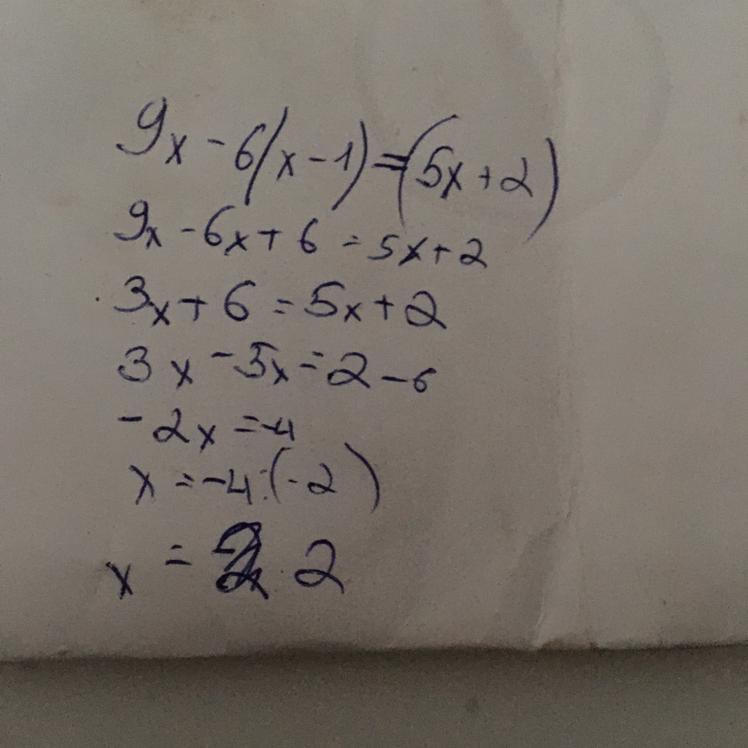 9x - 6(x - 1) = (5x + 2)
9x - 6x + 6 = 5x + 2
3x + 6 = 5x + 2
3x - 5x = 2 - 6
- 2x = -4
x = -4 : (-2)
x = 2